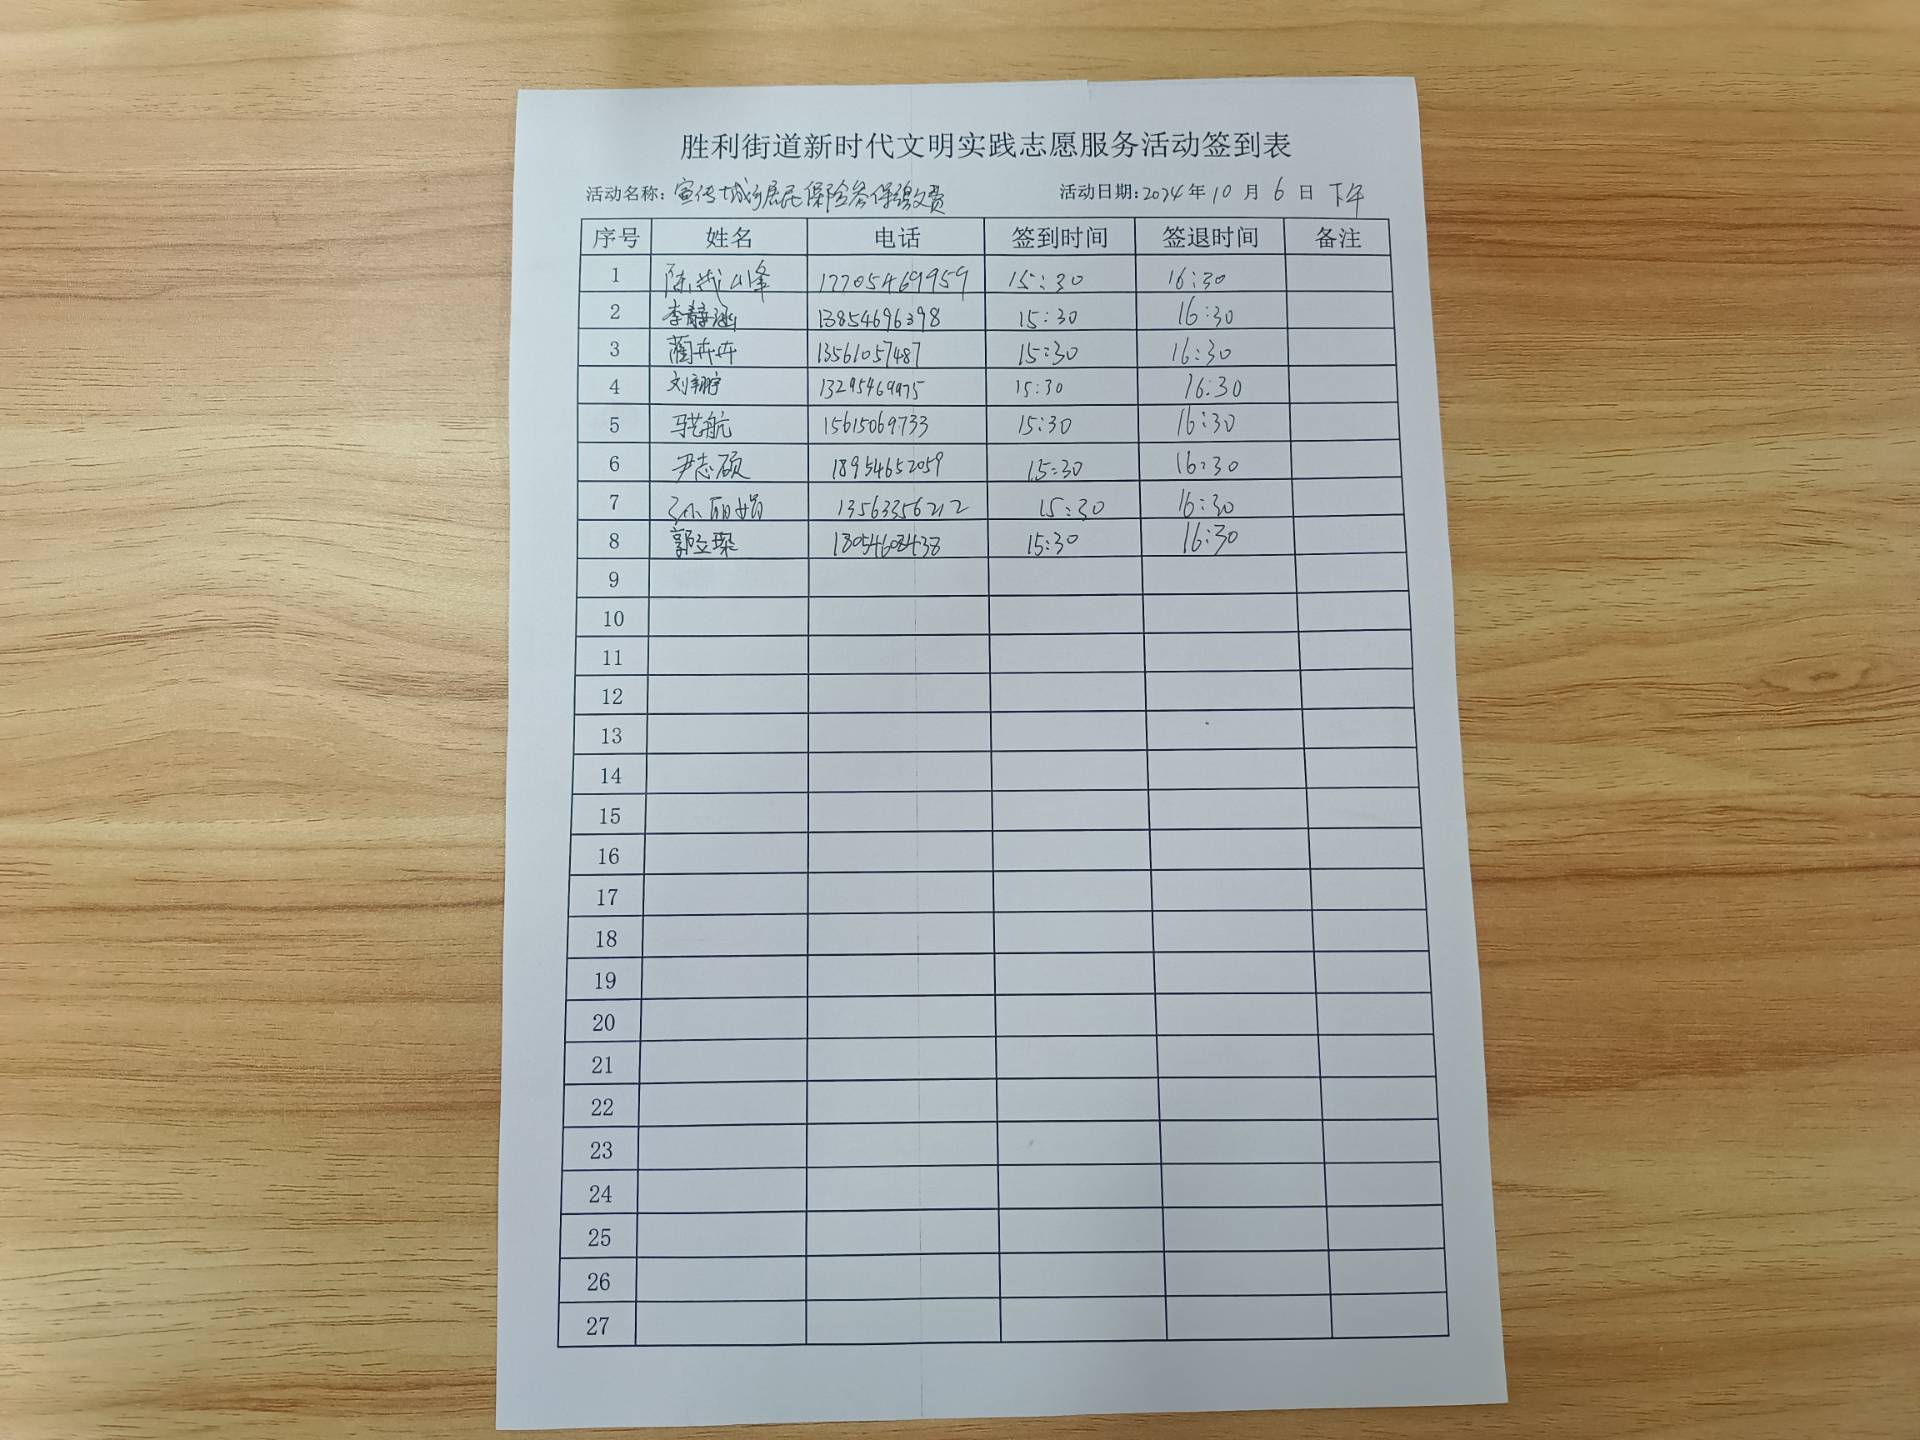 胜利街道新时代文明实践志愿服务活动签到表
活动名称: 宣传城乡居民保险参保缴费 活动日期: 2024 年 10 月 6 日 下午
序号 姓名 电话 签到时间 签退时间 备注
1 陈 峰 17705469959 15:30 16:30
2 李静涵 13854696398 15:30 16:30
3 蔺卉卉 13561057487 15:30 16:30
4 刘翔宇 13295469975 15:30 16:30
5 马艺航 15615069733 15:30 16:30
6 尹志硕 18954652059 15:30 16:30
7 孙丽娟 13563356212 15:30 16:30
8 郭立琛 15:30 16:30
9
10
11
12
13
14
15
16
17
18
19
20
21
22
23
24
25
26
27